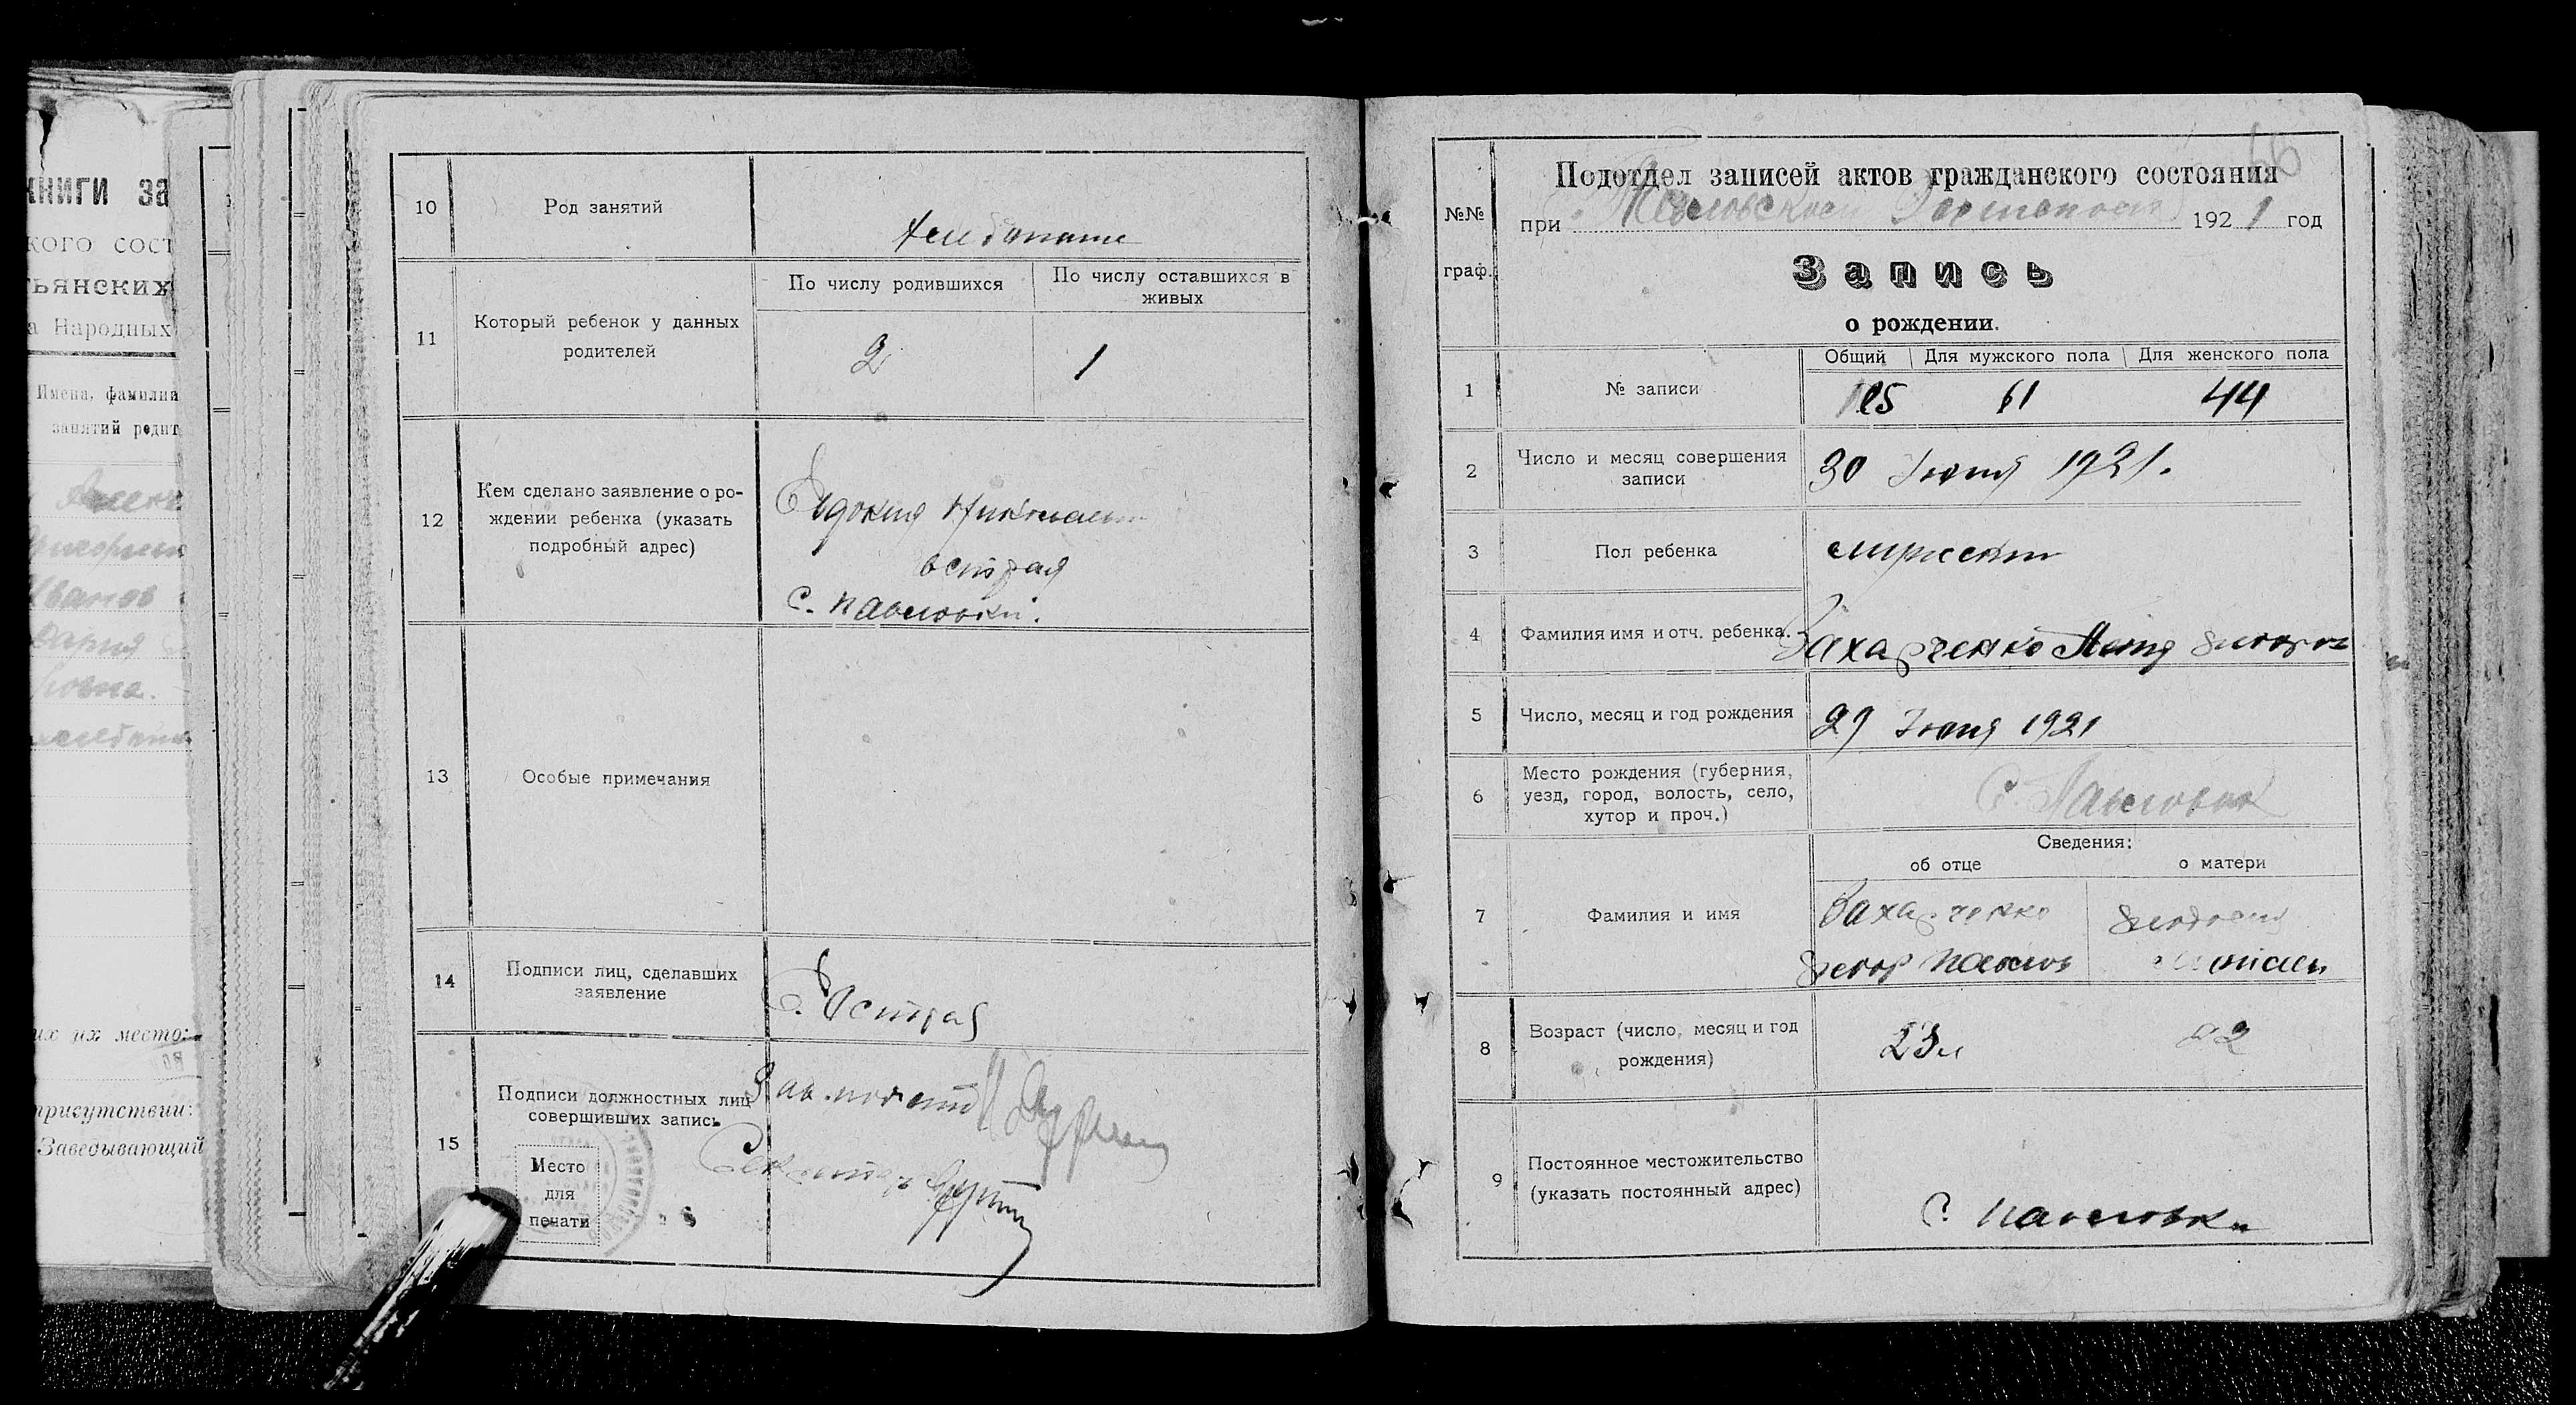 КНИГИ ЗА
кого сост
ьянских
а Народных
Имена, фамилия
занятий родит
Иванов
Дария
их их место:
присутствии:
Заведывающий
10
Род занятий
хлебопаш
11
Который ребенок у данных
родителей
По числу родившихся
По числу оставшихся в
живых
2
1
12
Кем сделано заявление о ро-
ждении ребенка (указать
подробный адрес)
Евдокия Николаев
Вострая
с. Павловки.
13
Особые примечания
14
Подписи лиц, сделавших
заявление
Вострая
15
Подписи должностных лиц
совершивших запись
Место
для
печати
Зав. подотд
Секретар
66
№№
граф.
Подотдел записей актов гражданского состояния
при Павловском 1921 год
Запись
о рождении.
1
№ записи
Общий
Для мужского пола
Для женского пола
105
61
44
2
Число и месяц совершения
записи
30 Июня 1921.
3
Пол ребенка
мужском
4
Фамилия имя и отч. ребенка.
Захарченко Петр Федоров
5
Число, месяц и год рождения
29 Июня 1921
6
Место рождения (губерния,
уезд, город, волость, село,
хутор и проч.)
С. Павловка
Сведения:
об отце
о матери
7
Фамилия и имя
Захарченко
Федор Павлов
8
Возраст (число, месяц и год
рождения)
23
22
9
Постоянное местожительство
(указать постоянный адрес)
С. Павловка